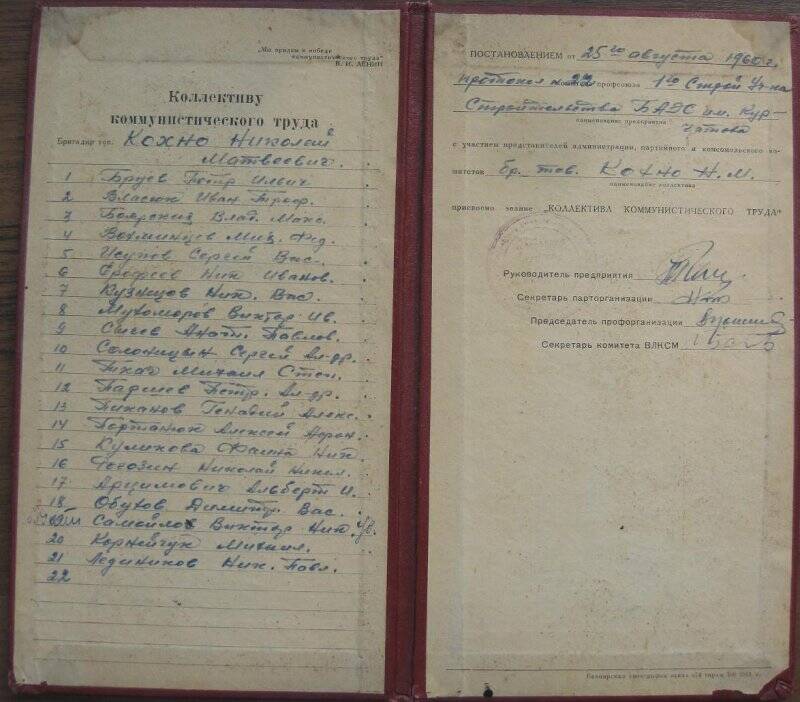 „Мы придем к победе
коммунистического труда"
В. И. ЛЕНИН
Коллективу
коммунистического труда
Бригадир тов. Кохно Николай
Матвеевич.
1 Бруев Петр Ильич
2 Власюк Иван Троф.
3 Боярский Влад. Макс.
4 Вохминцев Мих. Фед.
5 Исупов Сергей Вас.
6 Ерофеев Ник Иванов.
7 Кузнецов Ник. Вас.
8 Мухоморов Виктор Ив.
9 Сысов Анат. Павлов.
10 Солоницын Сергей Ал-др.
11 Ткач Михаил Степ.
12 Паршев Петр. Ал-др.
13 Пиканов Генадий Алекс.
14 Портанюк Алексей
15 Куликова Фаина Ник.
16 Рогозин Николай Никол.
17 Арцимович Альберт И.
18 Обухов Димитр. Вас.
19 Самойлов Виктор Ник. ув.
20 Корнейчук Михаил.
21 Ледников Ник. Павл.
22
ПОСТАНОВЛЕНИЕМ от 25го августа 1960 г.
протокол № 22 профсоюза 1го Строй Уч-ка
Строительства БАЭС им. Кур-
наименование предприятия
чатова
с участием представителей администрации, партийного и комсомольского ко-
митетов бр. тов. Кохно Н. М.
наименование коллектива
присвоено звание „КОЛЛЕКТИВА КОММУНИСТИЧЕСКОГО ТРУДА"
Руководитель предприятия
Секретарь парторганизации
Председатель профорганизации
Секретарь комитета ВЛКСМ